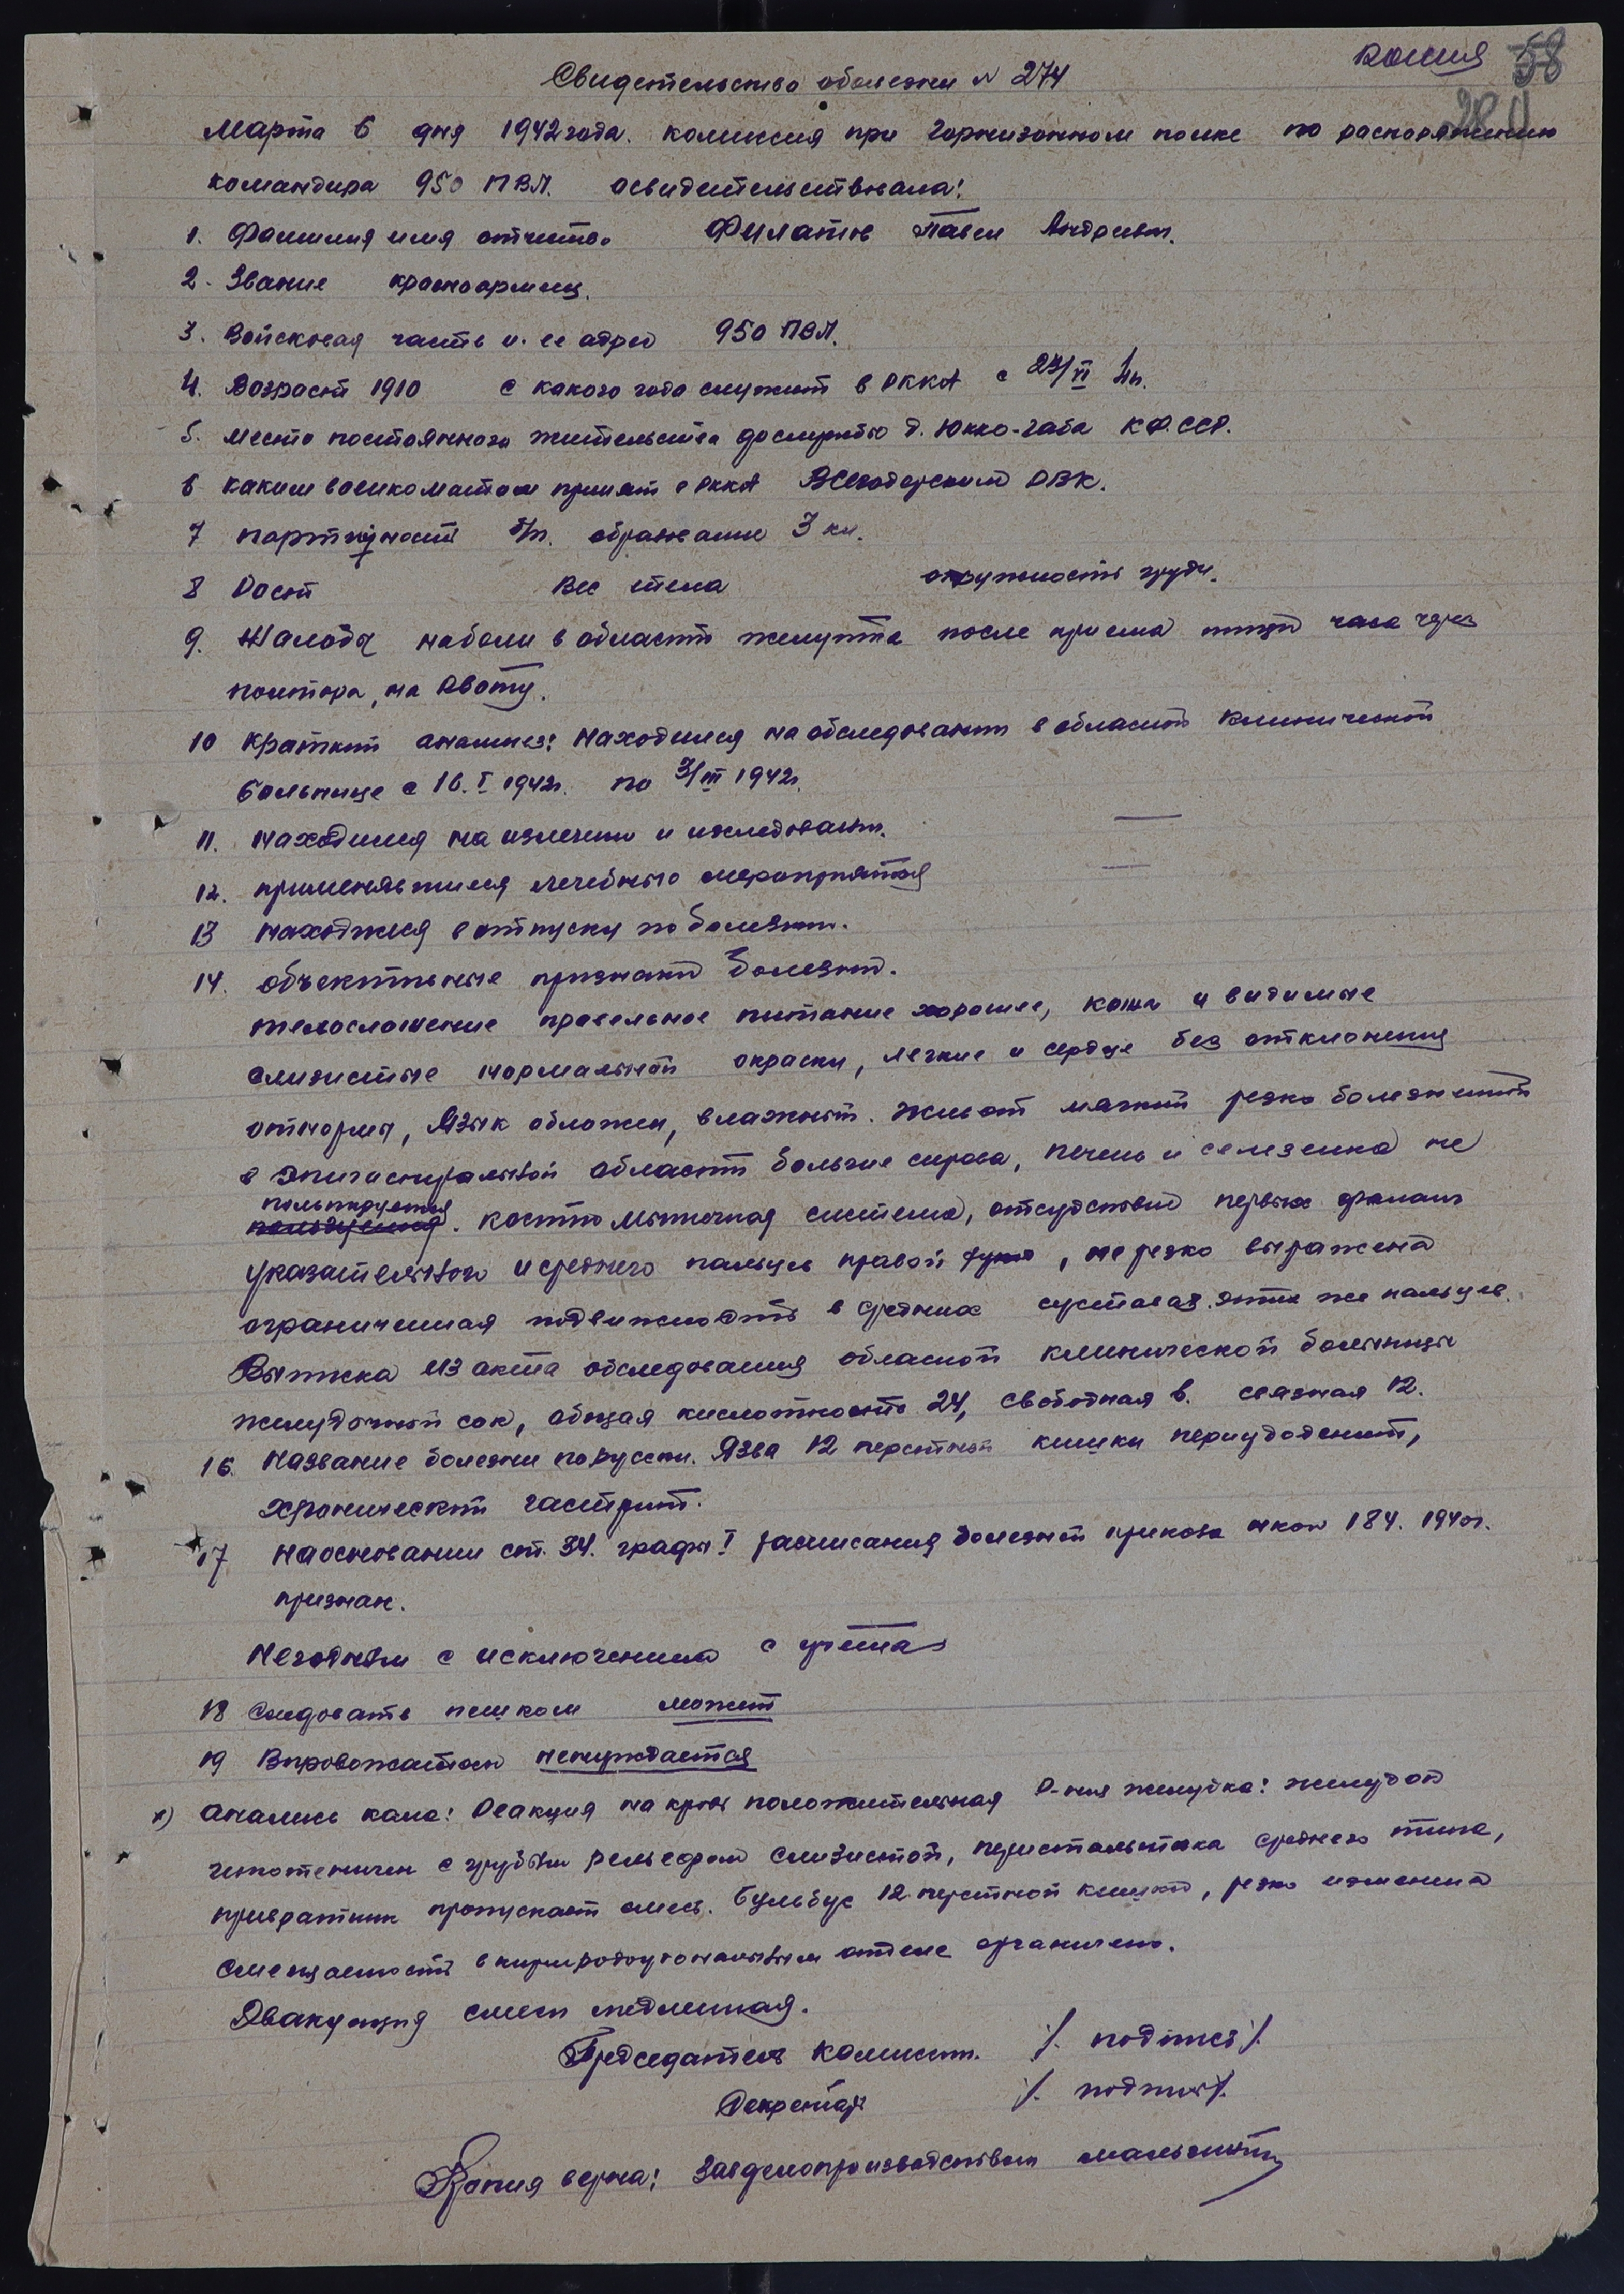 Копия 58
280
Свидетельство оболезни N 274
Марта 6 дня 1942 года. комиссия при Гарнизонном полке по распоряжению
командира 950 ПВЛ. освидетельствовала:
1. Фамилия имя отчество Филатов Павел Андреевич.
2. Звание красноармеец.
3. Войсковая часть и. ее адрес 950 ПВЛ.
4. Возраст 1910 с какого года служит в РККА с 23/VI 41г.
5. место постоянного жительства дослужбы д. Юкко-губа К.Ф.ССР.
6 каким военкоматом призват в РККА РВК.
7 партийность б/п. образование 3 кл.
8 Рост Вес тела окружность груди.
9. Жалобы наболи в области желудка после приема пищи часа через
полтора, на Рвоту.
10 краткий анамнез: находился на обследовании в областной клинической
больнице с 16.I 1942г. по 3/III 1942г.
11. находился на излечении и исследовании. —
12. применявшиеся лечебные мероприятия —
13 находился в отпуску по болезни.
14. объективные признаки болезни.
телосложение правельное питание хорошее, кожа и видимые
слизистые нормальной окраски, легкие и сердце без отклонения
отнормы, Язык обложен, влажный. Живот мягкий резко болезненный
в эпигастральной области больше справа, печень и селезенка не
пальпируется
пользуется. костно мышечная система, отсудствие первых фаланг
указательного и среднего пальцев правой руки, не резко выражена
ограниченная подвижность в средних суставах этих же пальцев.
Выписка из акта обследования областной клинической больницы
желудочный сок, общая кислотность 24, свободная 6. связная 12.
16. Название болезни порусски. Язва 12 перстной кишки периудоденит,
хронический гастрит.
17 на основании ст. 34. графы I расписания болезней приказа нко 184. 1940г.
признан.
Негодным с исключением с учета
18 Следовать пешком может
19 Впровожатом ненуждается
х) анализ кала: Реакция на кровь положительная Р-ния желудка: желудок
гипотеничен с грубым рельефом слизистой, перистальтика среднего типа,
привратник пропускает смесь. Бульбус 12-перстной кишки, резко изменена
смещаемость в отделе ограничено.
Эвакуация смеси медленная.
Председатель комиссии. /. подпись /.
Секретарь /. подпись /.
Копия верна: Завделопроизводством